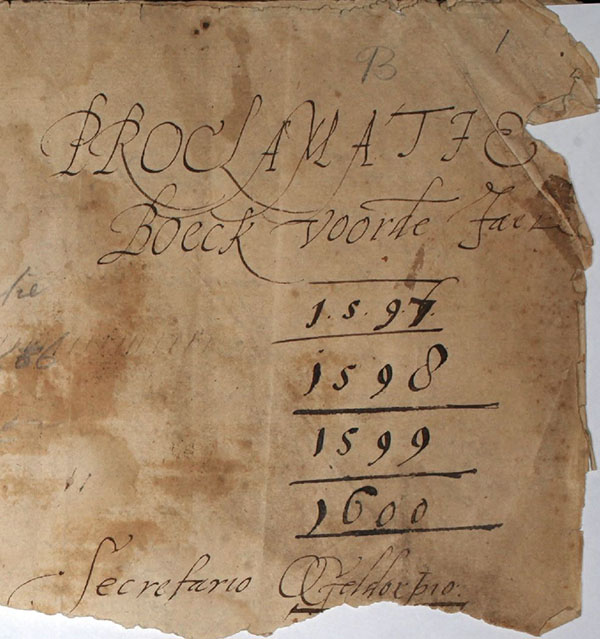 B 1
PROCLAMATIE
Boeck voorde Jaer
1.5.97.
1598
1599
1600
Secretario Geldorpio.